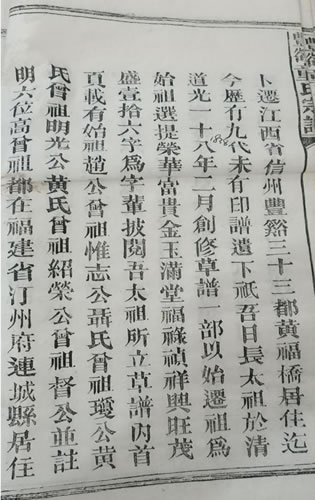 卜遷江西省信州豐谿三十三都黃福橋居住迄
今歷有九代未有印譜遺下祇吾日長太祖於清
道光一十八年二月創修草譜一部以始遷祖爲
始祖選提榮華富貴金玉滿堂福祿禎祥興旺茂
盛壹拾六字爲字輩披閱吾太祖所立草譜內首
頁載有始祖趙公曾祖惟志公聶氏曾祖瓊公黄
氏曾祖明光公黃氏曾祖紹榮公曾祖督公並註
明六位高曾祖都在福建省汀州府連城縣居住